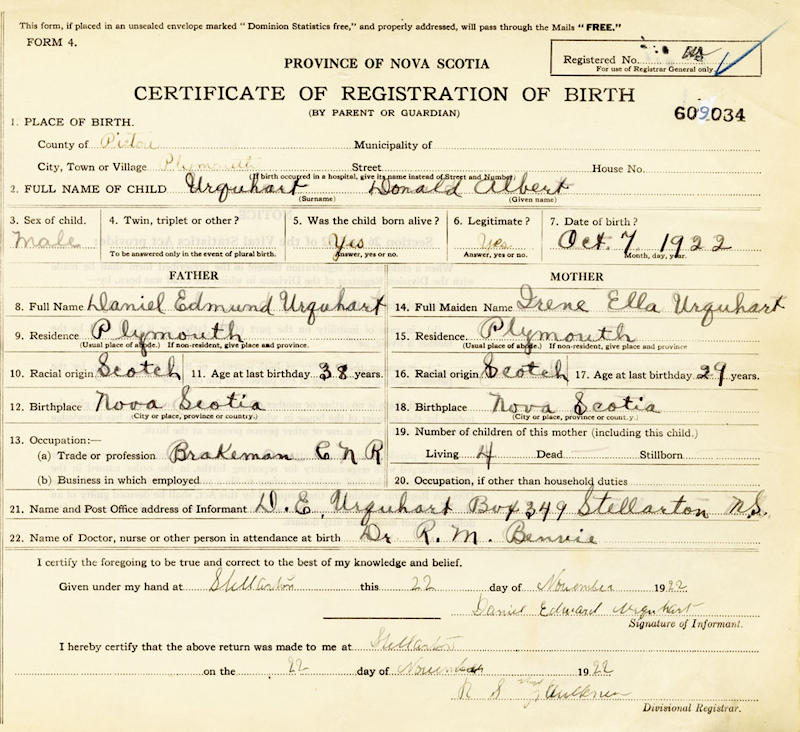 This form, if placed in an unsealed envelope marked "Dominion Statistics free," and properly addressed, will pass through the Mails "FREE."
FORM 4.
Registered No.
For use of Registrar General only
PROVINCE OF NOVA SCOTIA
CERTIFICATE OF REGISTRATION OF BIRTH
(BY PARENT OR GUARDIAN)
609034
1. PLACE OF BIRTH.
County of Pictou Municipality of
City, Town or Village Plymouth Street House No.
(If birth occurred in a hospital, give its name instead of Street and Number)
2. FULL NAME OF CHILD Urquhart Donald Albert
(Surname) (Given name)
3. Sex of child. 4. Twin, triplet or other? 5. Was the child born alive? 6. Legitimate? 7. Date of birth?
Male Yes Yes Oct. 7 1922
To be answered only in the event of plural birth. Answer, yes or no. Answer, yes or no. Month, day, year.
FATHER MOTHER
8. Full Name Daniel Edmund Urquhart 14. Full Maiden Name Irene Ella Urquhart
9. Residence Plymouth 15. Residence Plymouth
(Usual place of abode.) If non-resident, give place and province. (Usual place of abode.) If non-resident, give place and province
10. Racial origin Scotch 11. Age at last birthday 38 years. 16. Racial origin Scotch 17. Age at last birthday 29 years.
12. Birthplace Nova Scotia 18. Birthplace Nova Scotia
(City or place, province or country.) (City or place, province or country.)
13. Occupation:— 19. Number of children of this mother (including this child.)
(a) Trade or profession Brakeman C N R Living 4 Dead Stillborn
(b) Business in which employed 20. Occupation, if other than household duties
21. Name and Post Office address of Informant D. E. Urquhart Box 349 Stellarton N.S.
22. Name of Doctor, nurse or other person in attendance at birth Dr R. M. Benvie
I certify the foregoing to be true and correct to the best of my knowledge and belief.
Given under my hand at Stellarton this 22 day of November 1922
Daniel Edward Urquhart
Signature of Informant.
I hereby certify that the above return was made to me at Stellarton
on the 22 day of November 1922
R S Faulkner
Divisional Registrar.